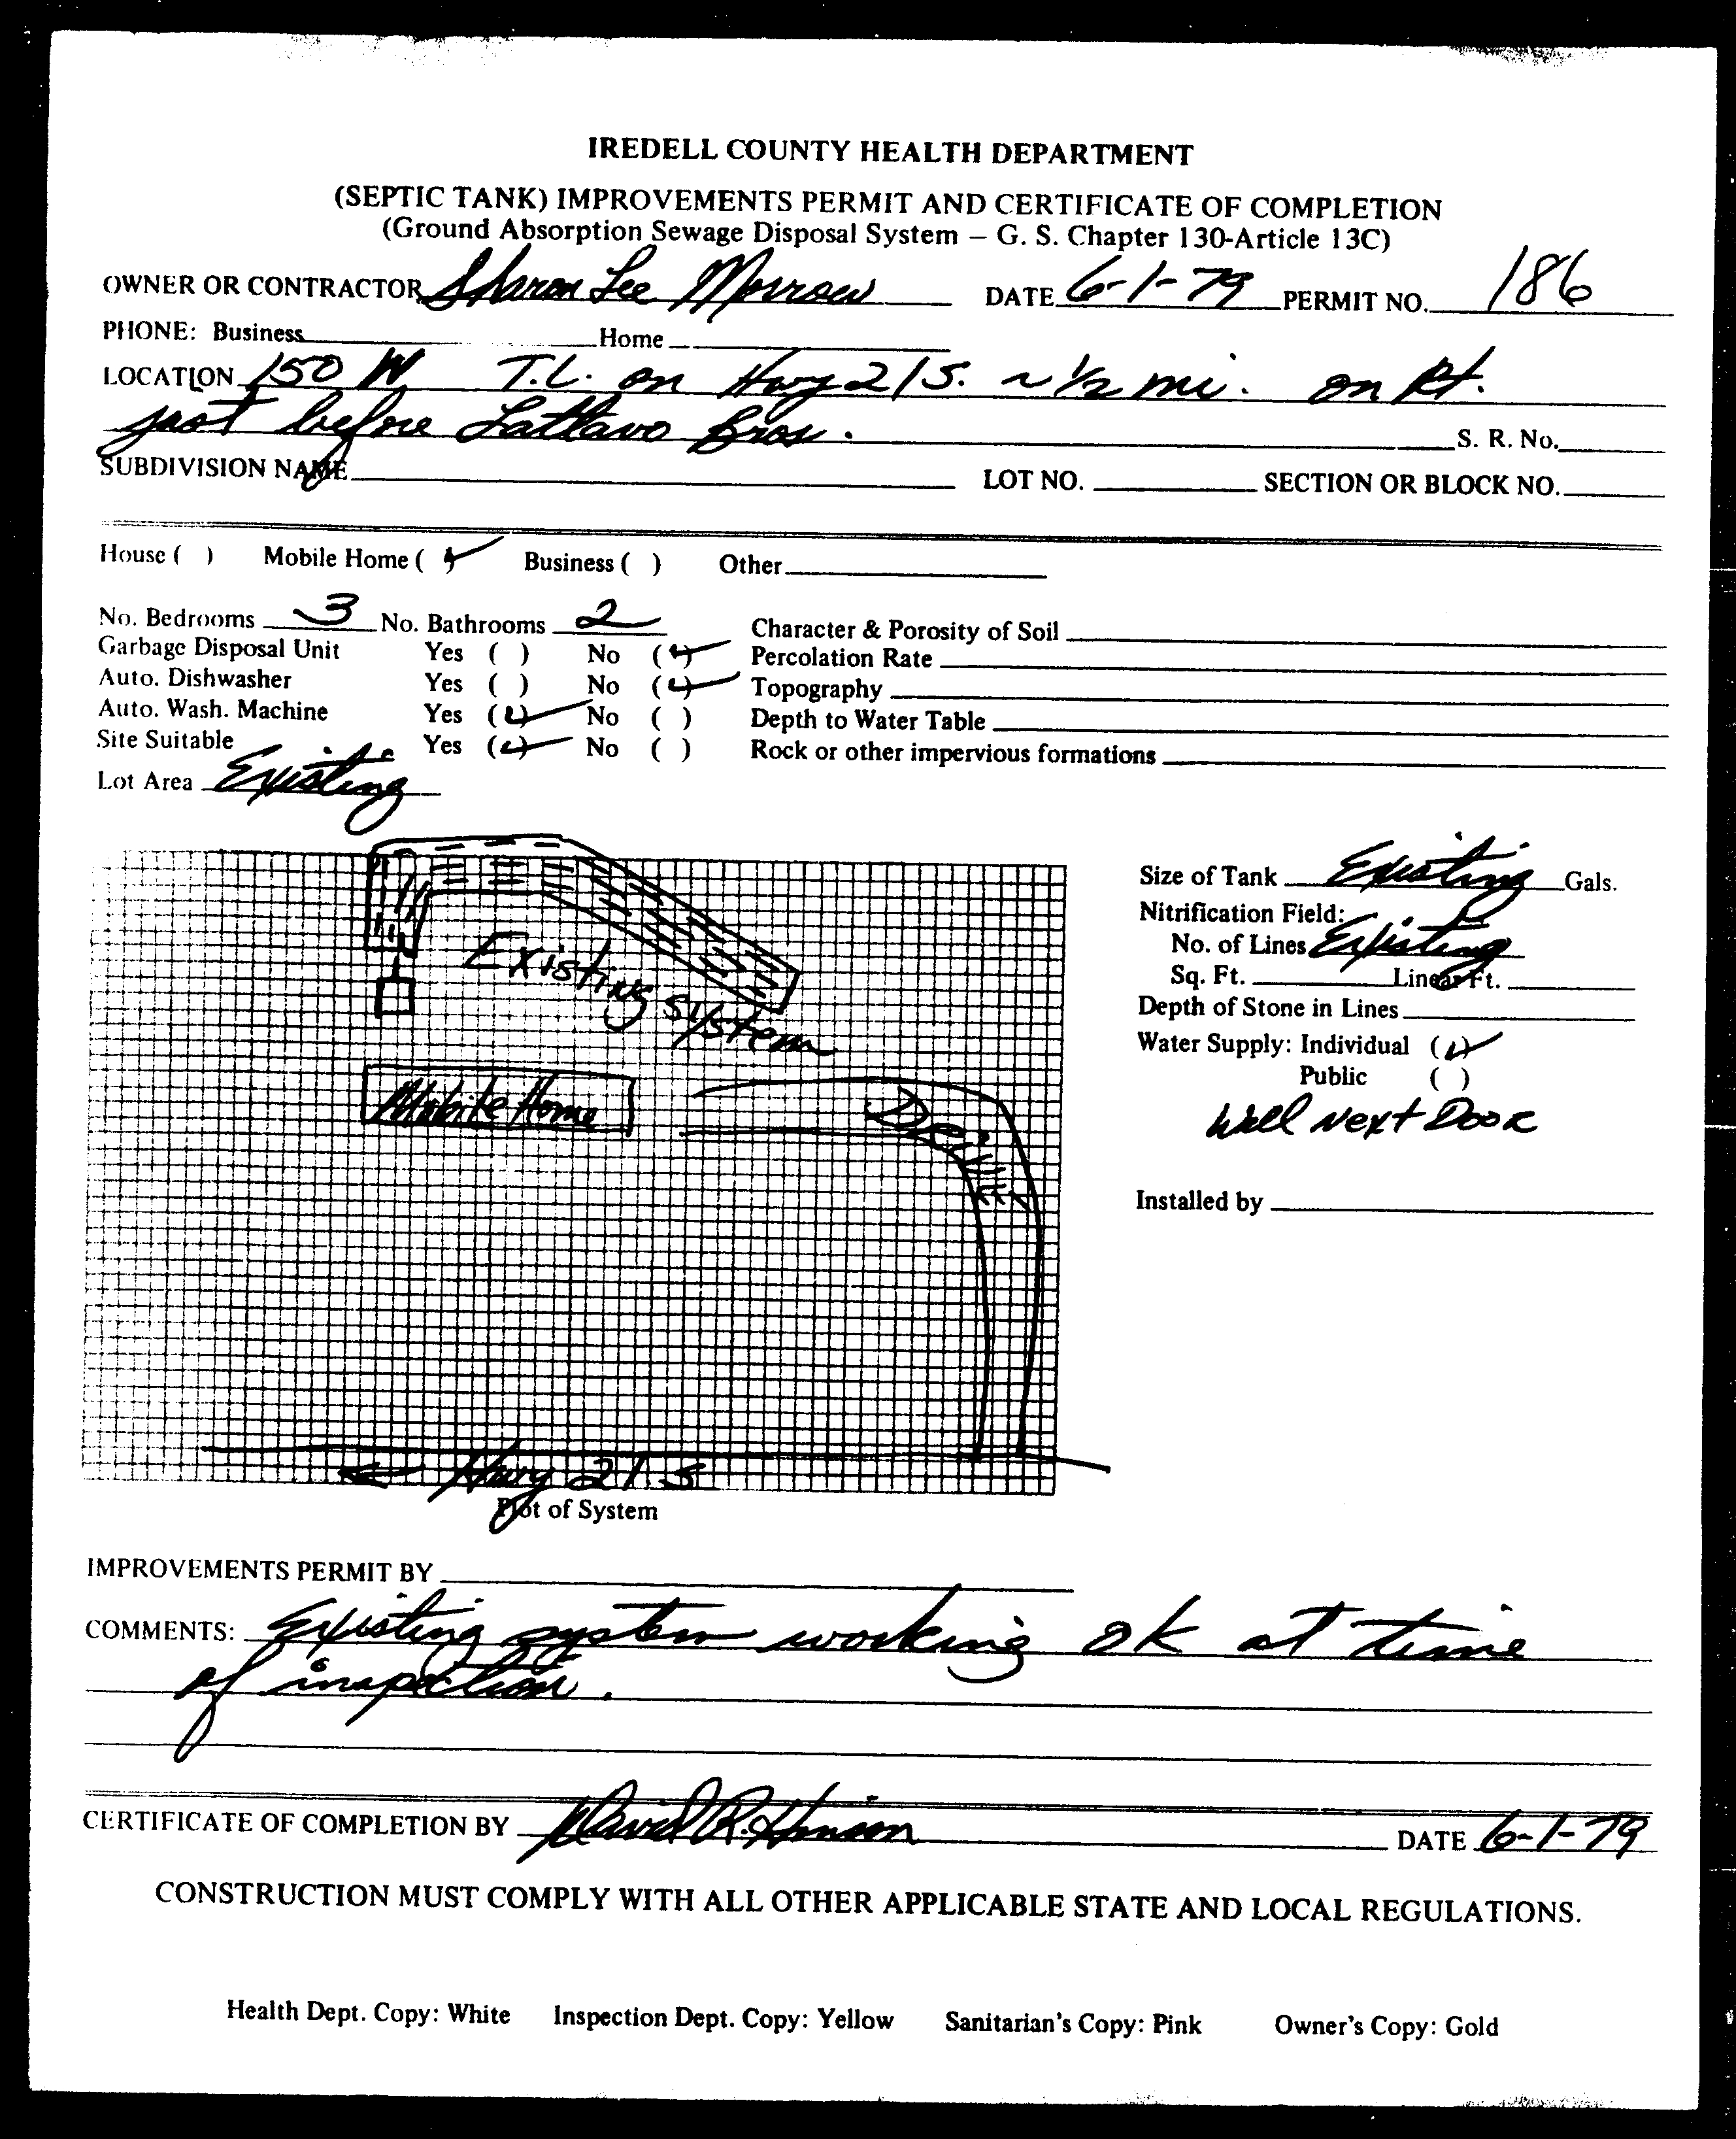 IREDELL COUNTY HEALTH DEPARTMENT
(SEPTIC TANK) IMPROVEMENTS PERMIT AND CERTIFICATE OF COMPLETION
(Ground Absorption Sewage Disposal System – G. S. Chapter 130-Article 13C)
OWNER OR CONTRACTOR Sharon Lee Morrow DATE 6-1-79 PERMIT NO. 186
PHONE: Business Home
LOCATION 150 W T.L. on Hwy 21 S. ~ 1/2 mi. on Rt.
just before Lattavo Bros. S. R. No.
SUBDIVISION NAME LOT NO. SECTION OR BLOCK NO.
House ( ) Mobile Home (✓) Business ( ) Other
No. Bedrooms 3 No. Bathrooms 2 Character & Porosity of Soil
Garbage Disposal Unit Yes ( ) No (✓) Percolation Rate
Auto. Dishwasher Yes ( ) No (✓) Topography
Auto. Wash. Machine Yes (✓) No ( ) Depth to Water Table
Site Suitable Yes (✓) No ( ) Rock or other impervious formations
Lot Area Existing
Existing System
Mobile Home
DRIVE
← Hwy 21 S
Plot of System
Size of Tank Existing Gals.
Nitrification Field:
No. of Lines Existing
Sq. Ft. Linear Ft.
Depth of Stone in Lines
Water Supply: Individual (✓)
Public ( )
Well Next Door
Installed by
IMPROVEMENTS PERMIT BY
COMMENTS: Existing system working ok at time
of inspection.
CERTIFICATE OF COMPLETION BY David R. Hinson DATE 6-1-79
CONSTRUCTION MUST COMPLY WITH ALL OTHER APPLICABLE STATE AND LOCAL REGULATIONS.
Health Dept. Copy: White Inspection Dept. Copy: Yellow Sanitarian's Copy: Pink Owner's Copy: Gold